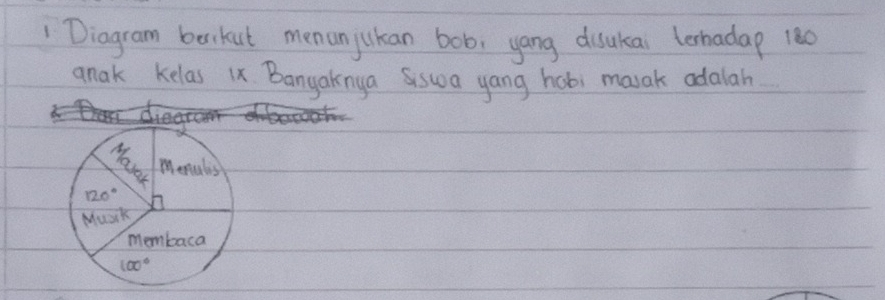 1 Diagram berikut menunjukan bobi yang disukai terhadap 180
anak kelas IX. Banyaknya siswa yang hobi masak adalah....
Dari diagram dibawah
Masak
Menulis
120°
Musik
Membaca
100°